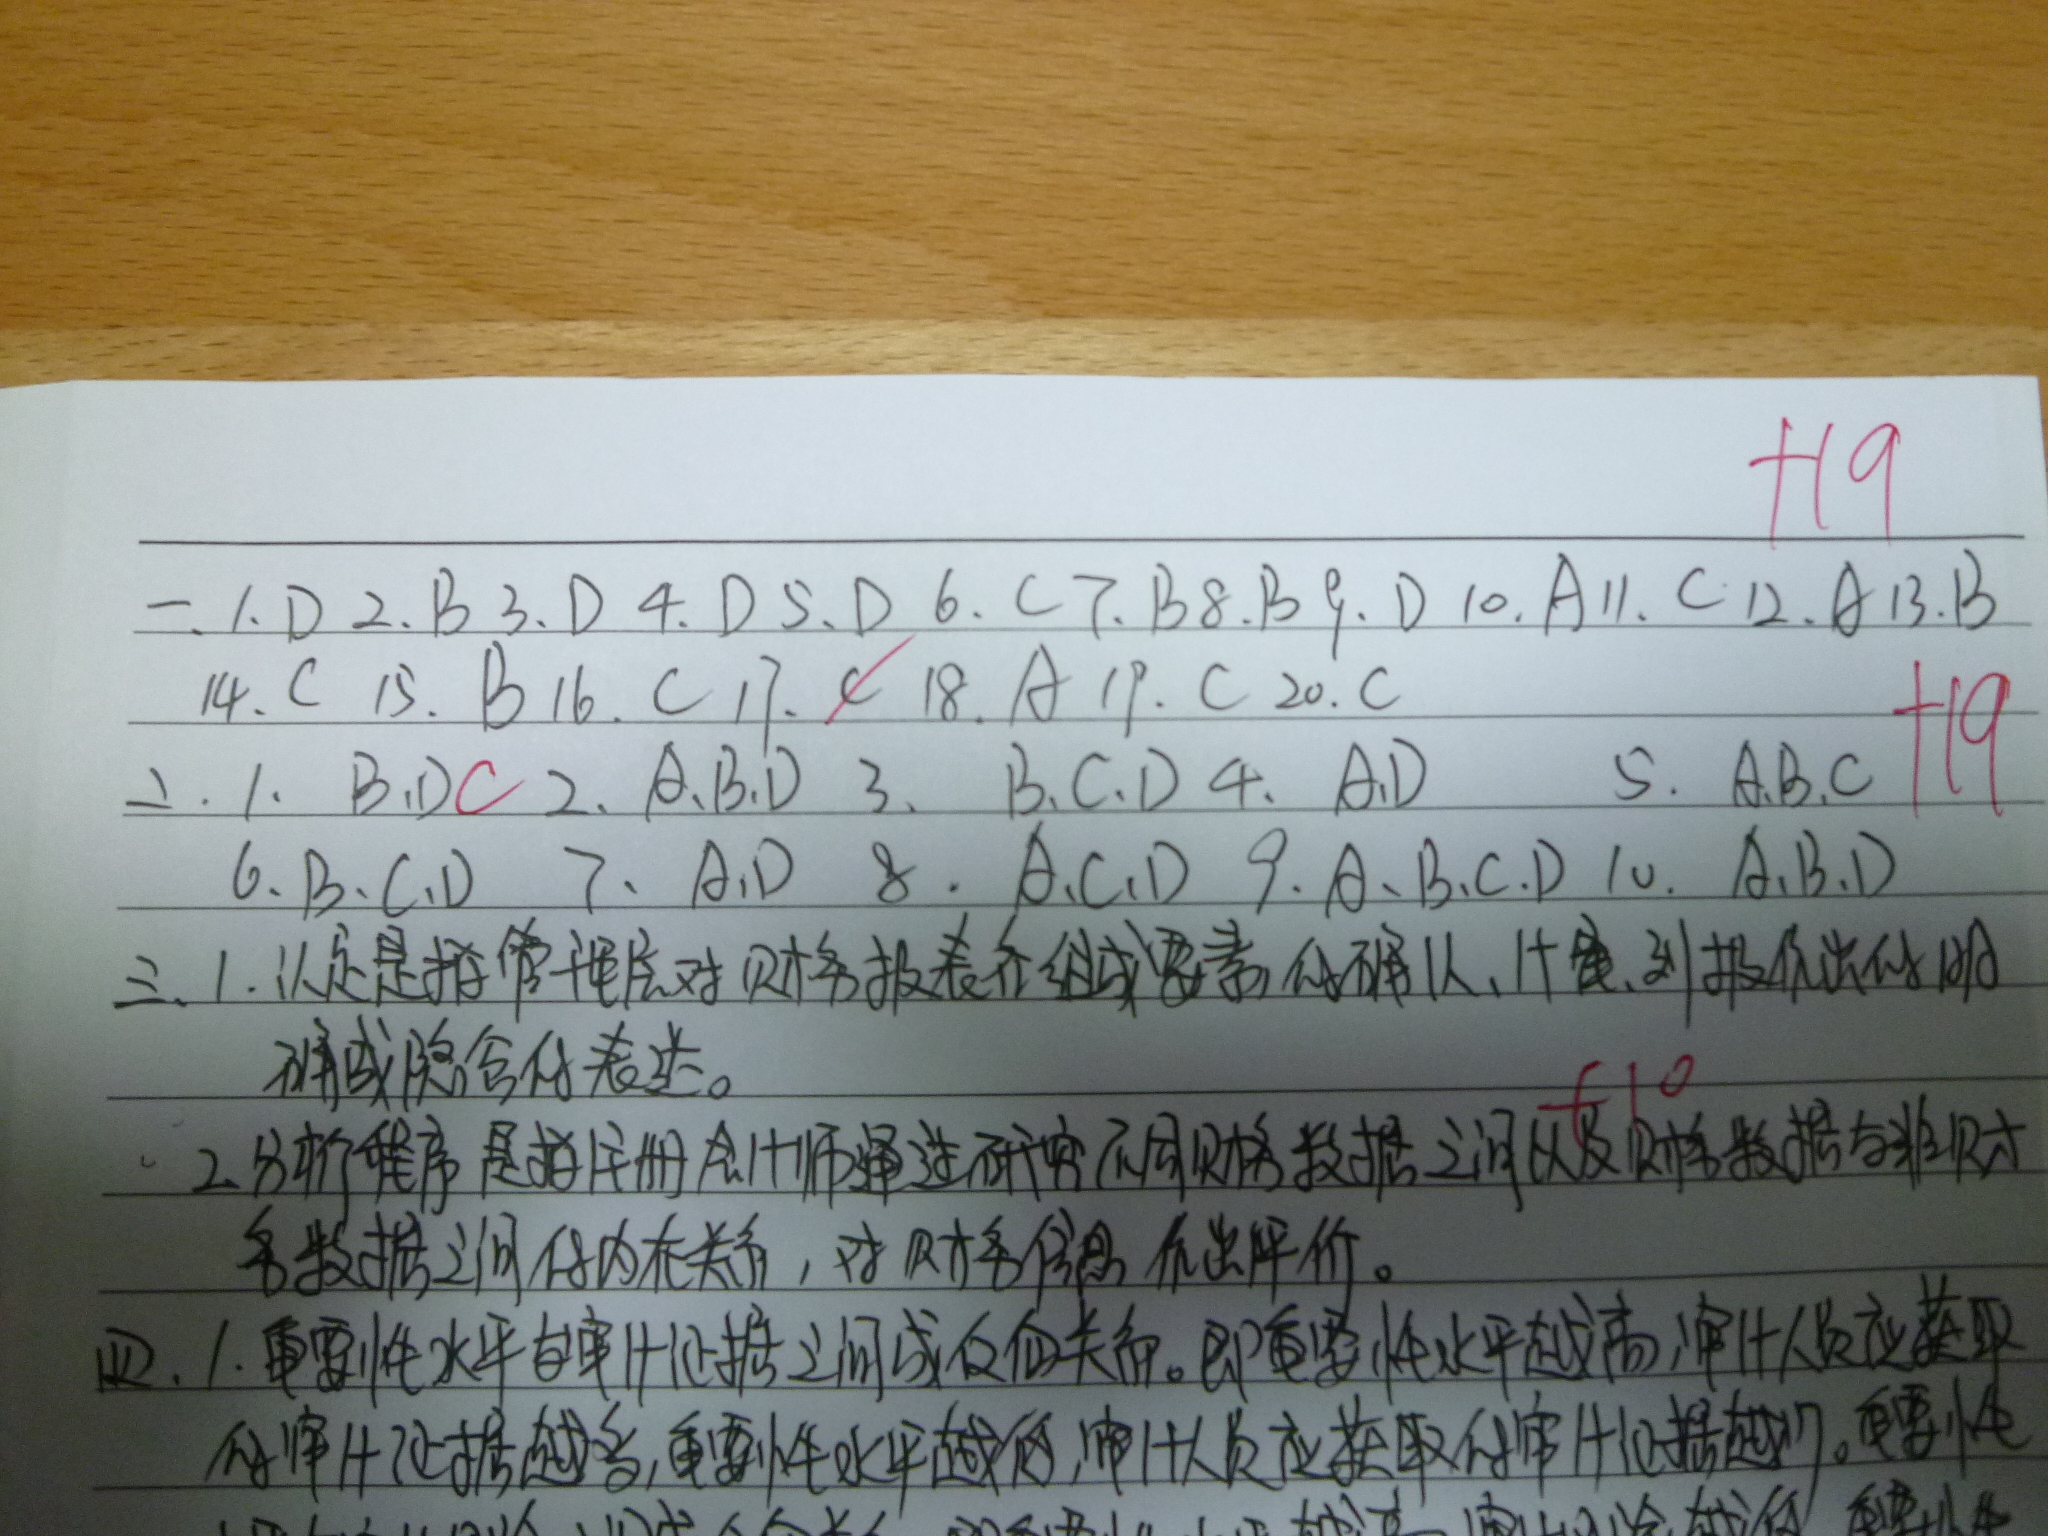 +19
一. 1. D 2. B 3. D 4. D 5. D 6. C 7. B 8. B 9. D 10. A 11. C 12. A 13. B
14. C 15. B 16. C 17. C 18. A 19. C 20. C
+19
二. 1. B.D C 2. A.B.D 3. B.C.D 4. A.D 5. A.B.C
6. B.C.D 7. A.D 8. A.C.D 9. A.B.C.D 10. A.B.D
三. 1. 认定是指管理层对财务报表各组成要素的确认、计量、列报作出的明
确或隐含的表达。
+10
2. 分析程序是指注册会计师通过研究不同财务数据之间以及财务数据与非财
务数据之间的内在关系,对财务信息作出评价。
四. 1. 重要性水平与审计证据之间成反向关系。即重要性水平越高,审计人员应获取
的审计证据越多,重要性水平越低,审计人员应获取的审计证据越少。重要性